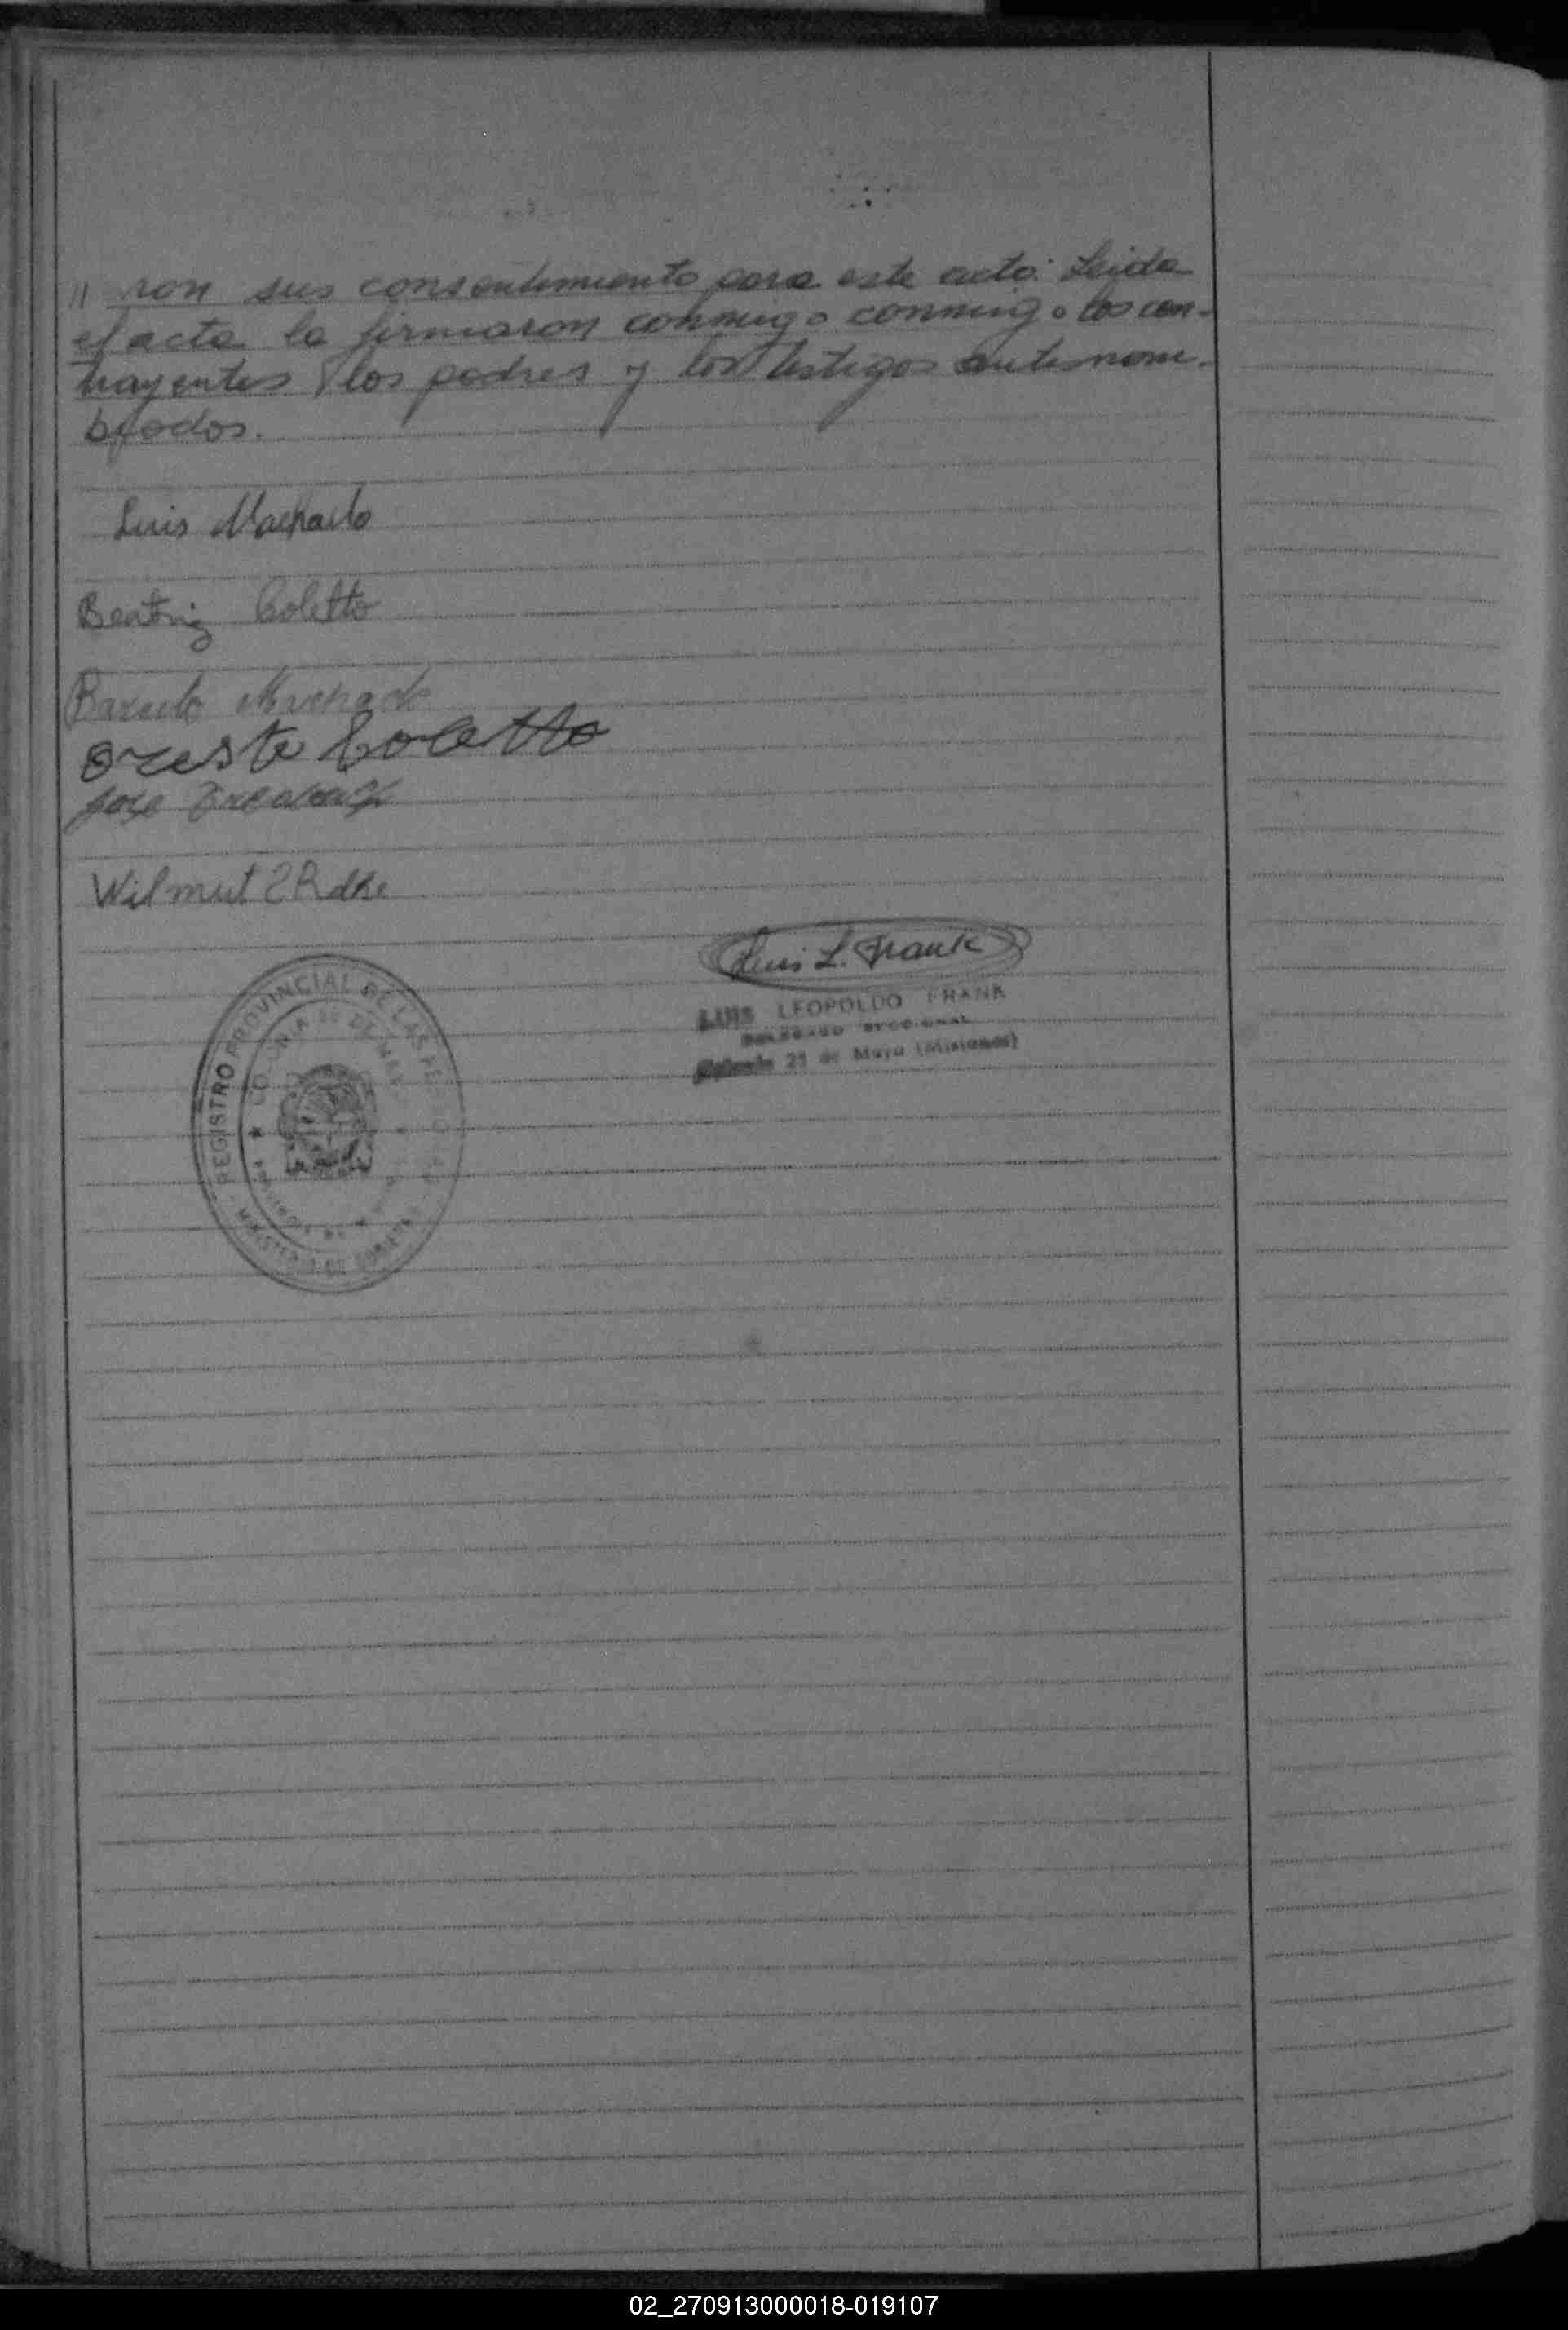 // ron sus consentimiento para este acto. Leida
el acta la firmaron conmigo conmigo los con-
trayentes los padres y los testigos antesnom-
brados.
Luis Machado
Beatriz Coletto
Machado
Oreste Coletto
Jose
Wilmut
Luis L. Frank
LUIS LEOPOLDO FRANK
DELEGADO SECCIONAL
25 de Mayo (Misiones)
REGISTRO PROVINCIAL DE LAS PERSONAS
COLONIA 25 DE MAYO
MINISTERIO DE GOBIERNO
02_270913000018-019107